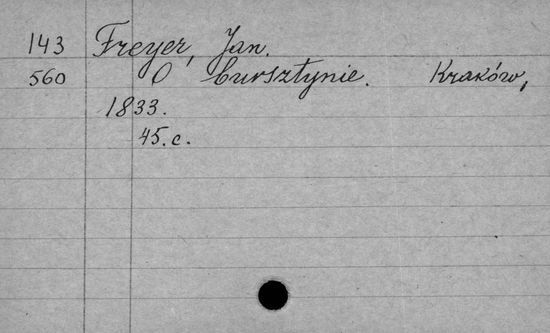 143 Freyer, Jan.
560 O bursztynie. Kraków,
1833.
45.c.